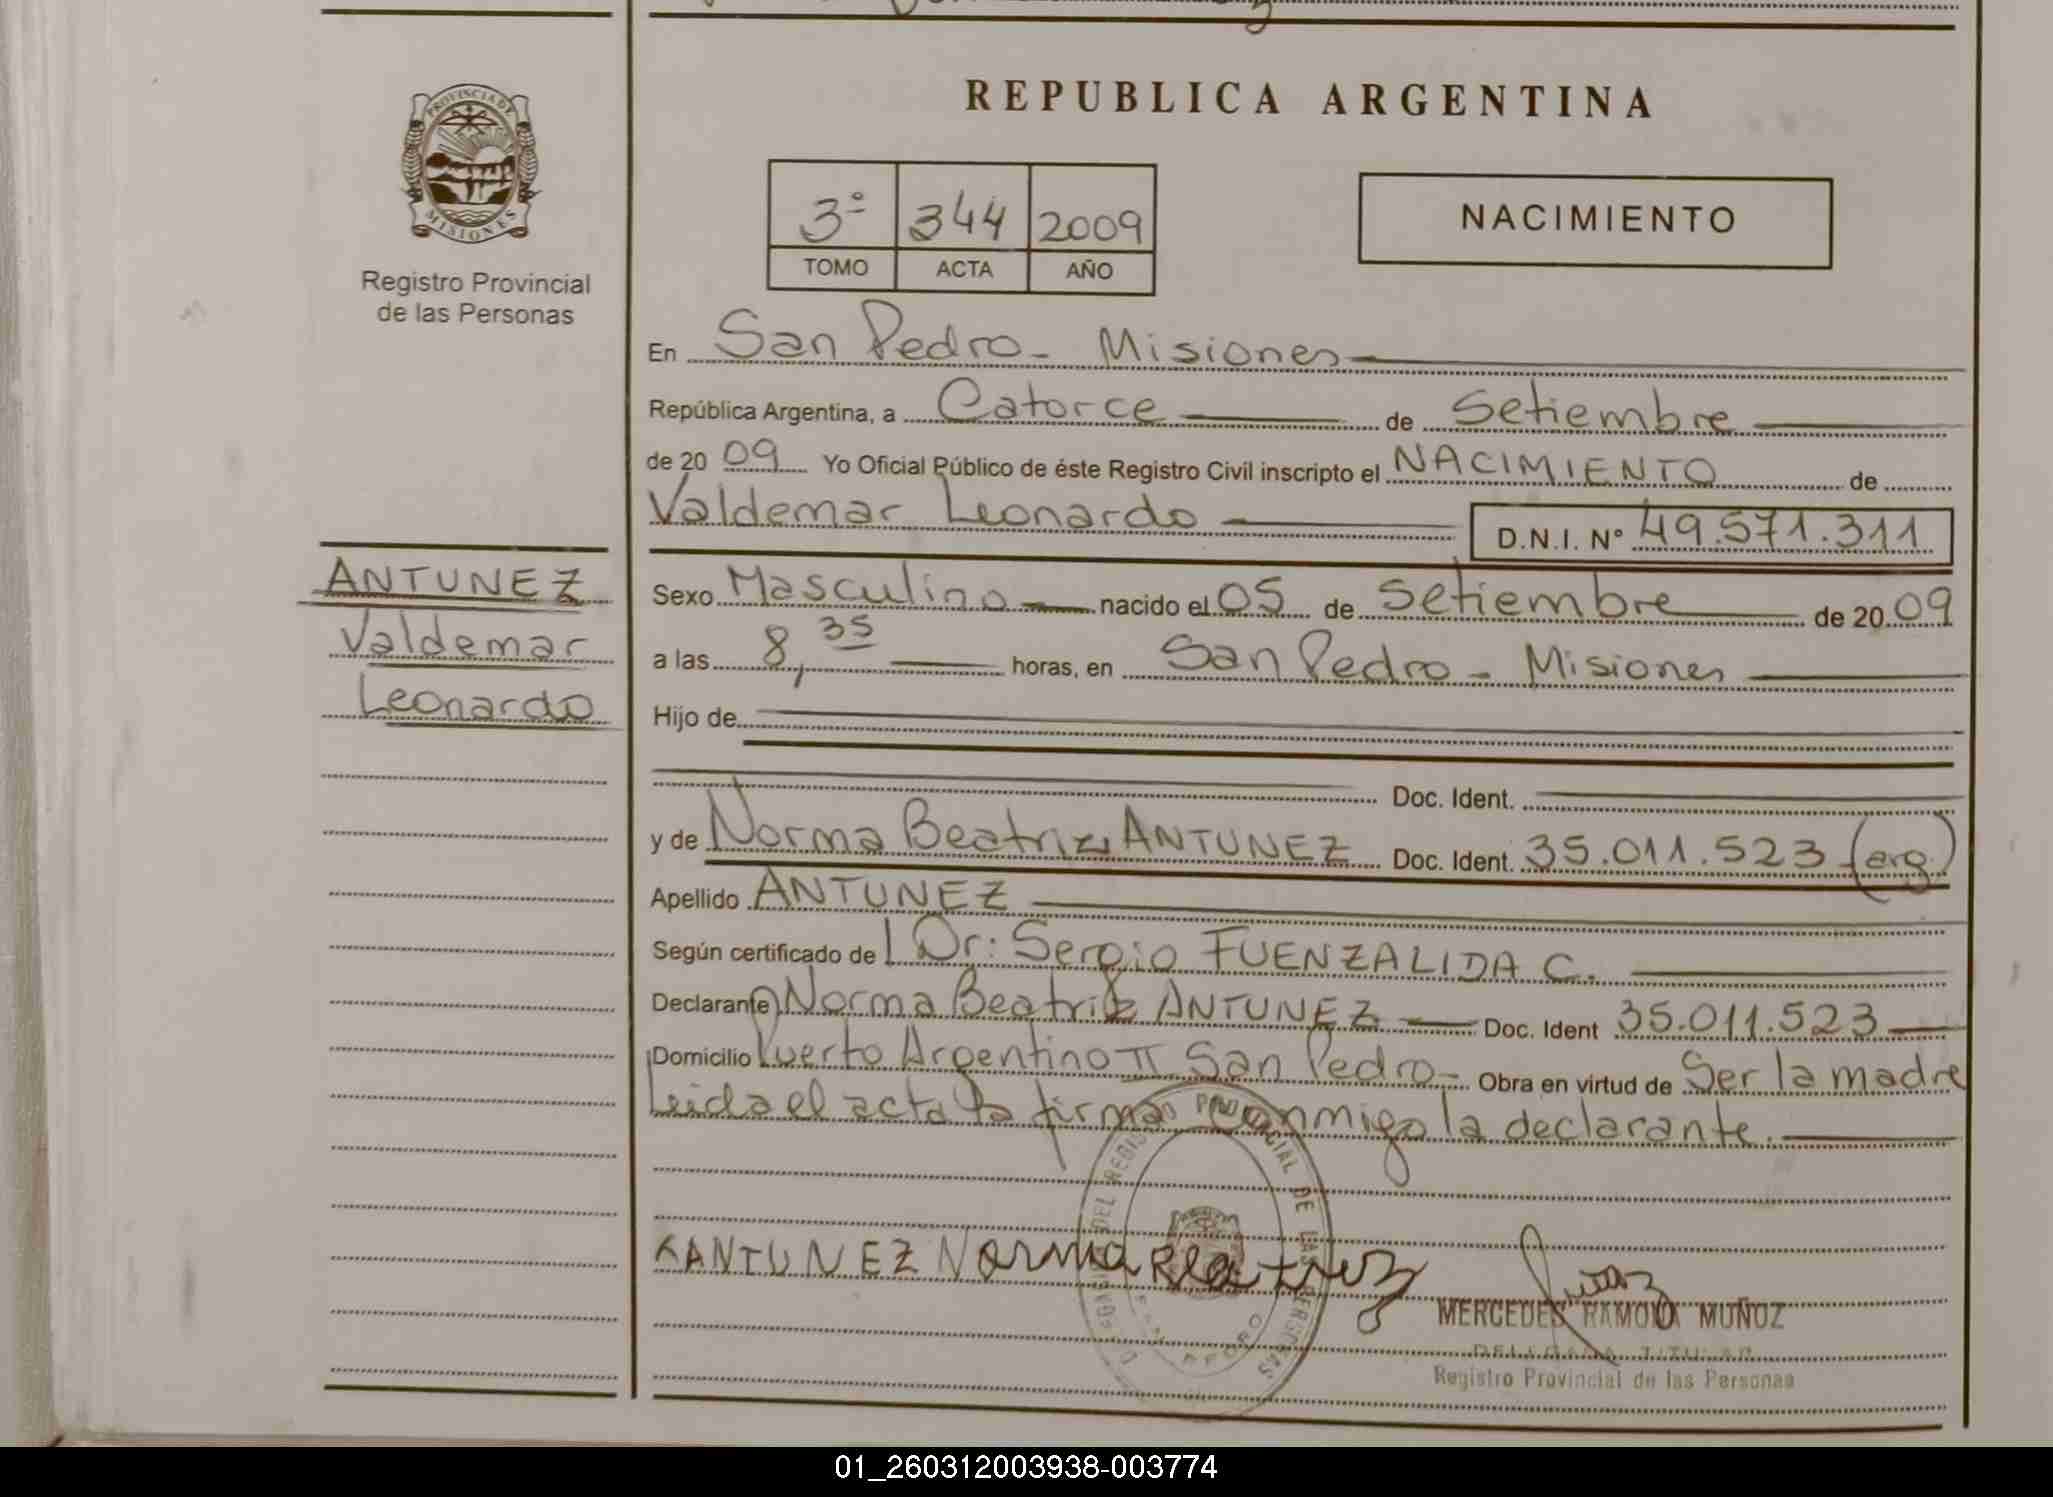 REPUBLICA ARGENTINA
PROVINCIA DE
MISIONES
Registro Provincial
de las Personas
3º 344 2009
TOMO ACTA AÑO
NACIMIENTO
En San Pedro - Misiones
República Argentina, a Catorce de Setiembre
de 20 09 Yo Oficial Público de éste Registro Civil inscripto el NACIMIENTO de
Valdemar Leonardo D.N.I. Nº 49.571.311
ANTUNEZ
Valdemar
Leonardo
Sexo Masculino nacido el 05 de Setiembre de 20 09
a las 8,35 horas, en San Pedro - Misiones
Hijo de
Doc. Ident.
y de Norma Beatriz ANTUNEZ Doc. Ident. 35.011.523 (arg.)
Apellido ANTUNEZ
Según certificado de Dr: Sergio FUENZALIDA C.
Declarante Norma Beatriz ANTUNEZ Doc. Ident 35.011.523
Domicilio Puerto Argentino II San Pedro - Obra en virtud de Ser la madre
Leida el acta la firma conmigo la declarante.
DELEGACION DEL REGISTRO PROVINCIAL DE LAS PERSONAS
SAN PEDRO
ANTUNEZ Norma Beatriz
MERCEDES RAMONA MUÑOZ
DELEGADA TITULAR
Registro Provincial de las Personas
01_260312003938-003774